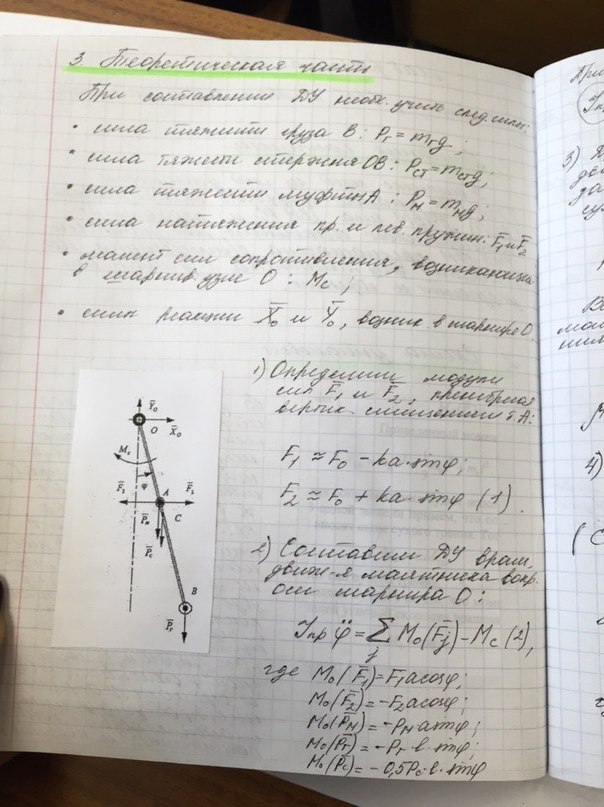 3. Теоретическая часть
При составлении ДУ необ. учит. след. силы:
• сила тяжести груза В: Pг = mгg;
• сила тяжести стержня ОВ: Pст = mстg;
• сила тяжести муфты А: Pм = mмg;
• сила натяжения пр. и лев. пружин: F̄₁ и F̄₂
• момент сил сопротивления, возникающий
в шарнир. узле О: Mс;
• силы реакции X̄₀ и Ȳ₀, возник. в шарнире О.
1) Определим модули
сил F̄₁ и F̄₂, пренебрегая
вертик. смещением т. А:
F₁ ≈ F₀ - ka·sinφ;
F₂ ≈ F₀ + ka·sinφ (1).
2) Составим ДУ вращ.
движ-я маятника вокр.
оси шарнира О:
Jпр φ̈ = ∑ M₀(F̄j) - Mс (2),
j
где M₀(F̄₁) = F₁acosφ;
M₀(F̄₂) = -F₂acosφ;
M₀(P̄м) = -Pм a sinφ;
M₀(P̄г) = -Pг·в·sinφ;
M₀(P̄с) = -0,5Pс·в·sinφ
Ȳ₀
O X̄₀
Mс
φ
F̄₂ A F̄₁
P̄м C
P̄с
B
P̄г
При
3)
4)
(